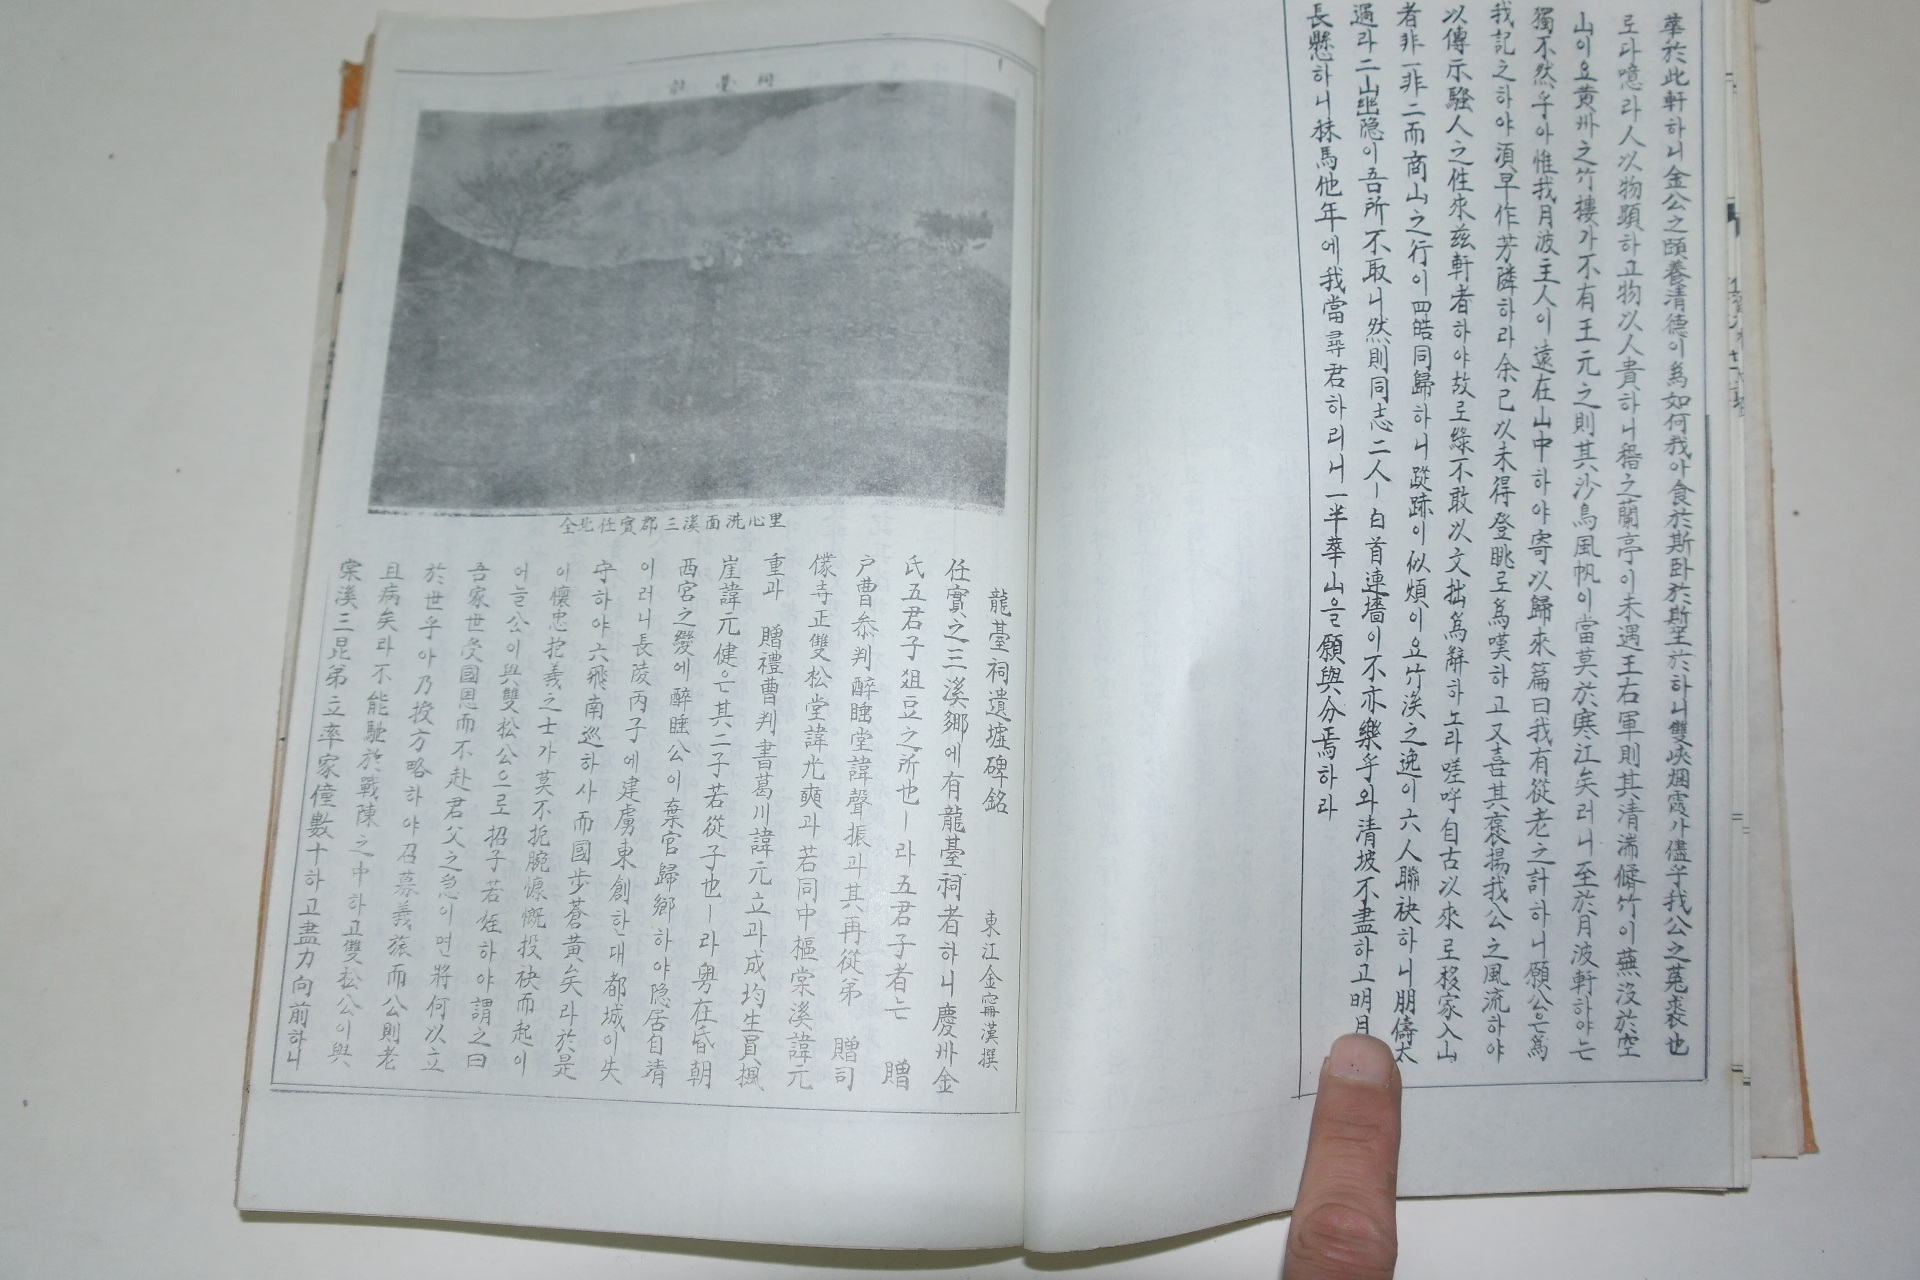 華於此軒하니金公之頤養淸德이爲如何我아食於斯卧於斯坐於하니雙峽烟霞가儘乎我公之菟裘也
로다噫라人以物顯하고物以人貴하니稽之蘭亭이未遇王右軍則其清湍脩竹이蕪没於空
山이요黃州之竹樓가不有王元之則其沙鳥風帆이當莫於寒江矣러니至於月波軒하야는
獨不然乎아惟我月波主人이遠在山中하야寄以歸來篇曰我有從老之計하니願公은爲
我記之하야須早作芳隣하라余已以未得登眺로爲嘆하고又喜其褒揚我公之風流하야
以傳示騷人之徃來兹軒者하야故로緣不敢以文拙爲辭하노라哇呼自古以來로移家入山
者非一非二而商山之行이四皓同歸하니蹤跡이似煩이요竹溪之逸이六人聯袂하니朋儔太
過라二山幽隐이吾所不取니然則同志二人ㅣ白首連墻이不亦樂乎와清坡不盡하고明月
長懸하니秣馬他年에我當尋君하리니一半華山을願與分焉하라
祠臺
全北任實郡三溪面洗心里
龍臺祠遺墟碑銘 東江金甯漢撰
任實之三溪鄉에有龍臺祠者하니慶州金
氏五君子俎豆之所也ㅣ라五君子者는 贈
戶曹叅判醉睡堂諱聲振과其再從弟 贈司
僕寺正雙松堂諱光奭과若同中樞棠溪諱元
重과 贈禮曹判書葛川諱元立과成均生員楓
崖諱元健은其二子若從子也ㅣ라粤在昏朝
西宮之變에醉睡公이棄官歸鄉하야隐居自淸
이러니長陵丙子에建虜東創한대都城이失
守하야六飛南巡하사而國步蒼黃矣라於是
이懷忠抱義之士가莫不扼腕慷慨投袂而起이
어늘公이與雙松公으로招子若姪하야謂之曰
吾家世受國恩而不赴君父之急이면將何以立
於世乎아乃授方略하야召募義旅而公則老
且病矣라不能馳於戰陳之中하고雙松公이與
棠溪三昆弟立率家僮數十하고盡力向前하니